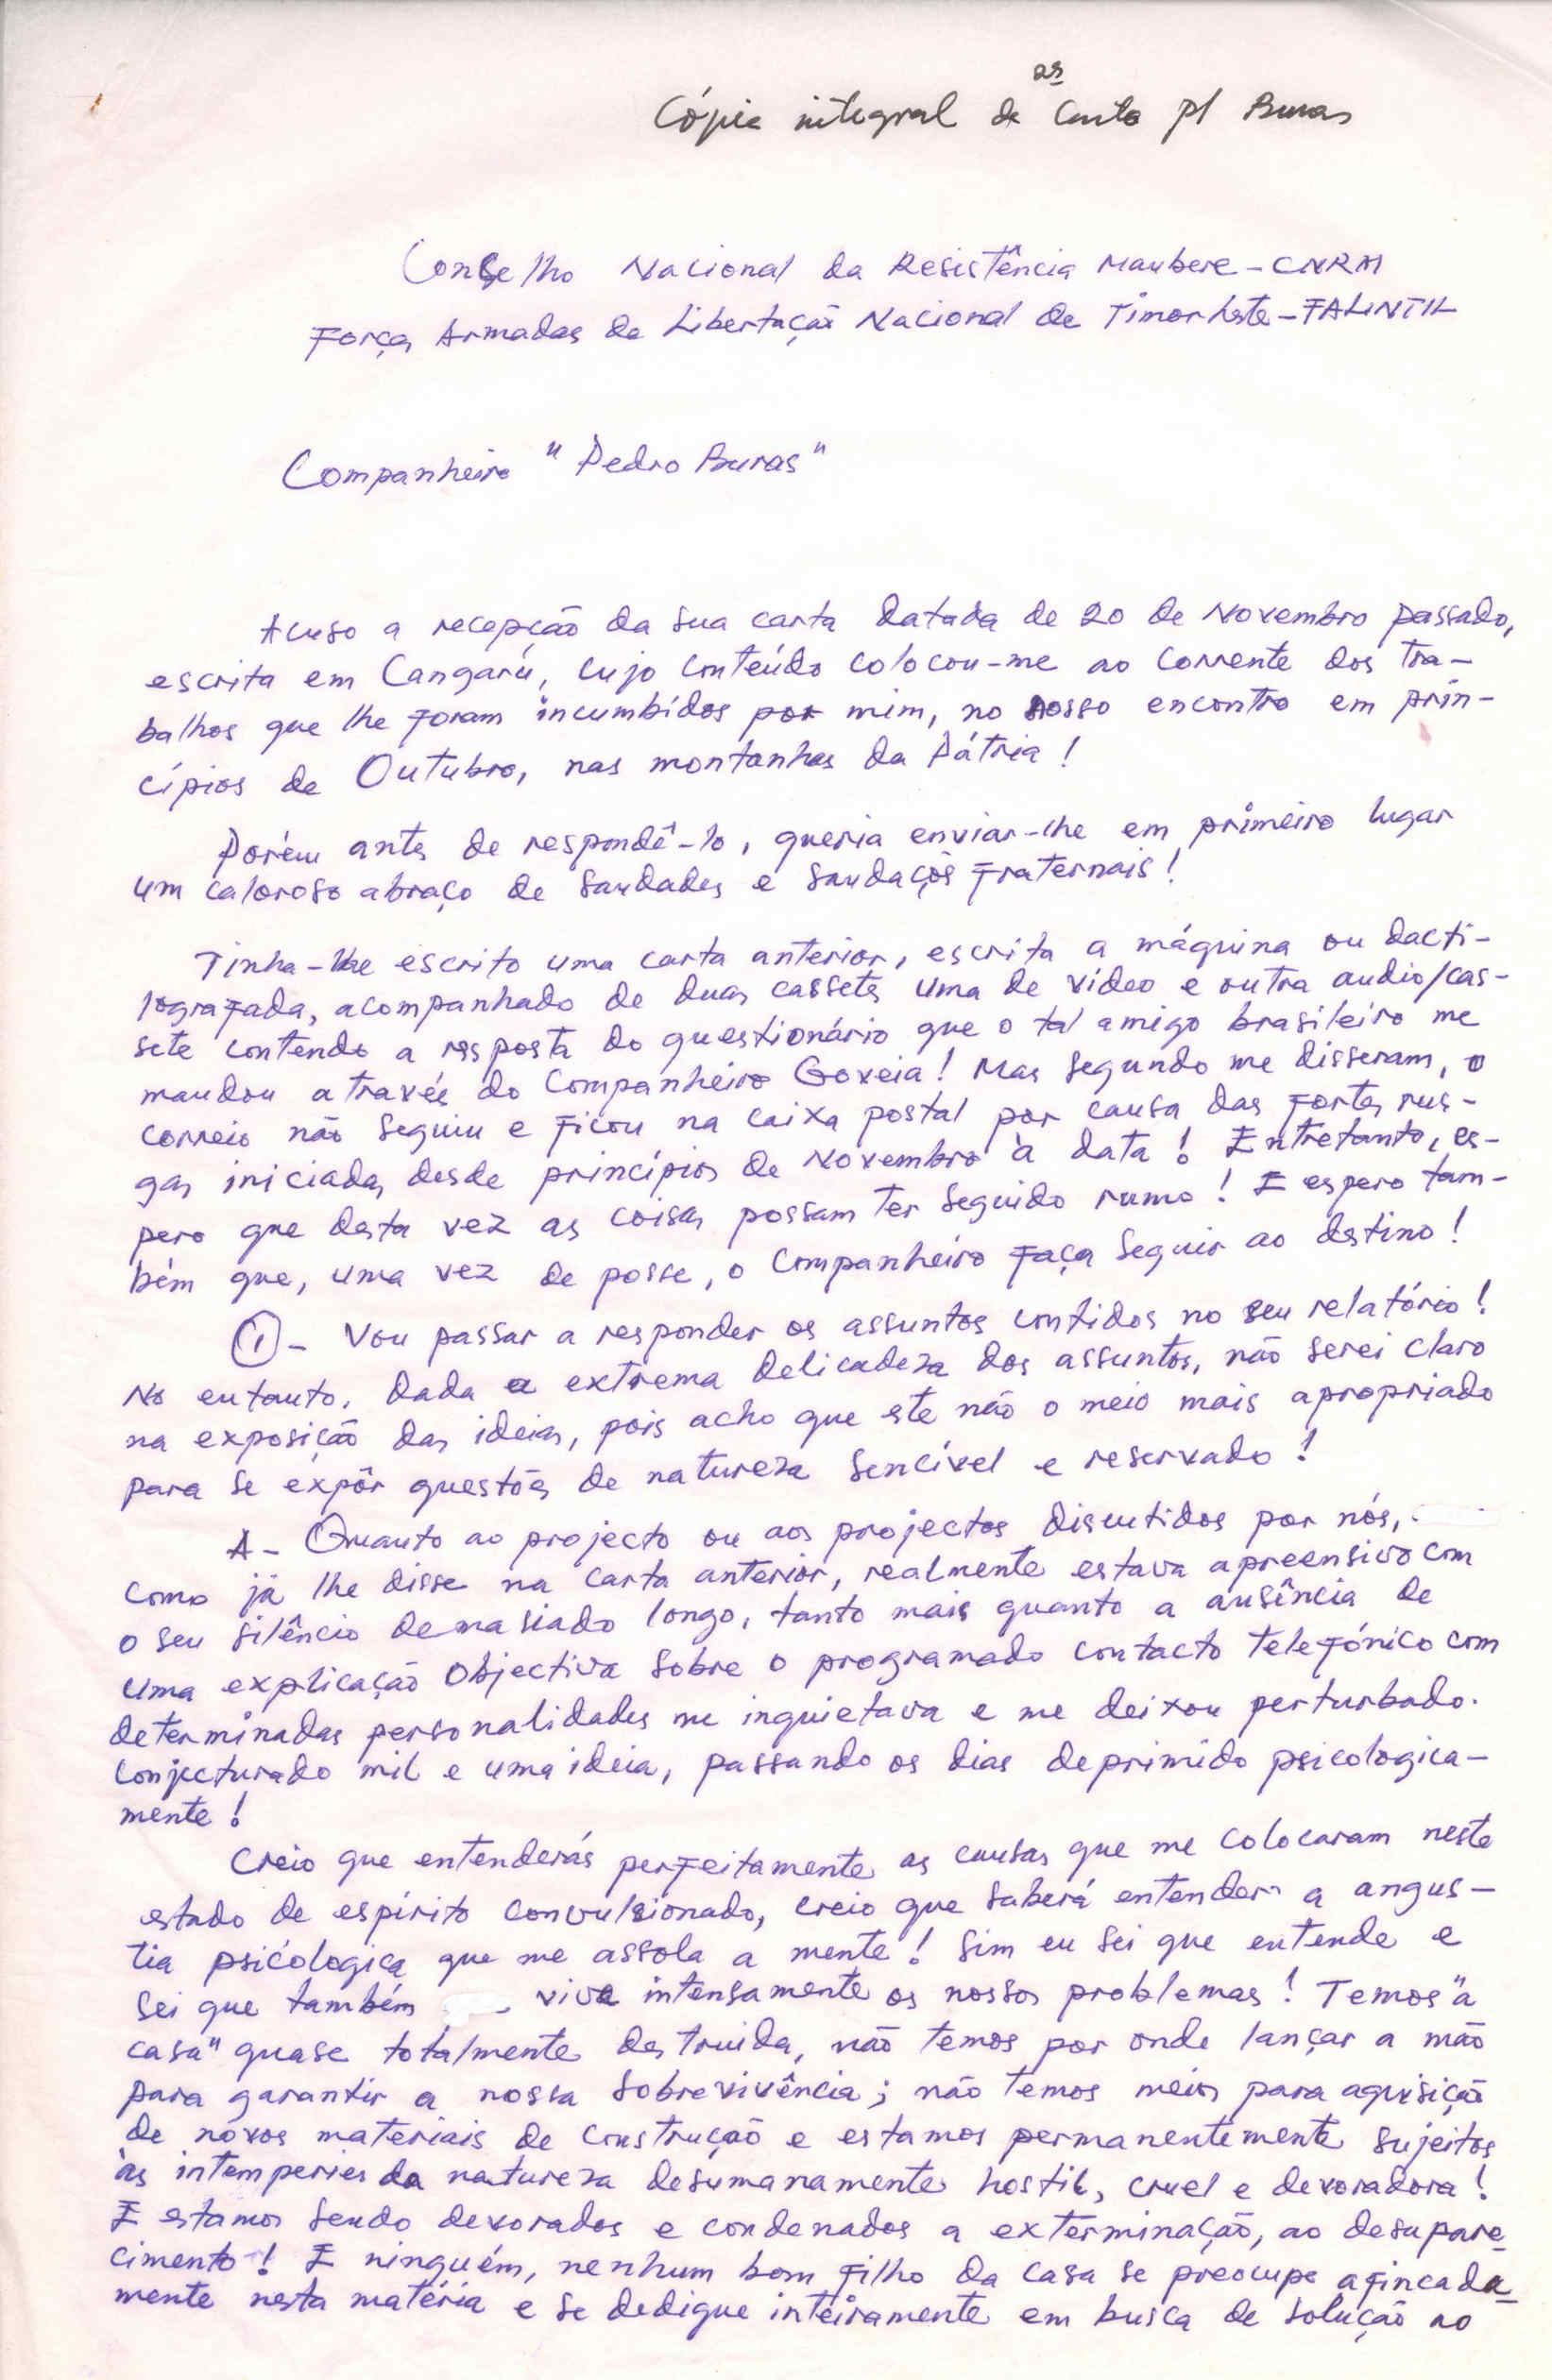 as
Cópia integral da Carta p/ Buras
Conselho Nacional da Resistência Maubere - CNRM
Forças Armadas de Libertação Nacional de Timor Leste - FALINTIL
Companheiro "Pedro Buras"
Acuso a recepção da sua carta datada de 20 de Novembro passado,
escrita em Cangarú, cujo conteúdo colocou-me ao corrente dos tra-
balhos que lhe foram incumbidos por mim, no nosso encontro em prin-
cípios de Outubro, nas montanhas da Pátria!
Porém antes de respondê-lo, queria enviar-lhe em primeiro lugar
um caloroso abraço de saudades e saudações fraternais!
Tinha-lhe escrito uma carta anterior, escrita a máquina ou dacti-
lografada, acompanhado de duas cassetes uma de vídeo e outra audio/cas-
sete contendo a resposta do questionário que o tal amigo brasileiro me
mandou através do Companheiro Goveia! Mas segundo me disseram, o
correio não seguiu e ficou na caixa postal por causa das fortes rus-
gas iniciadas desde princípios de Novembro à data! Entretanto, es-
pero que desta vez as coisas possam ter seguido rumo! E espero tam-
bém que, uma vez de posse, o Companheiro faça seguir ao destino!
① - Vou passar a responder os assuntos contidos no seu relatório!
No entanto, dada a extrema delicadeza dos assuntos, não serei claro
na exposição das ideias, pois acho que este não o meio mais apropriado
para se expôr questões de natureza sencível e reservado!
A - Quanto ao projecto ou aos projectos discutidos por nós,
como já lhe disse na carta anterior, realmente estava apreensivo com
o seu silêncio demasiado longo, tanto mais quanto a ausência de
uma explicação objectiva sobre o programado contacto telefónico com
determinadas personalidades me inquietava e me deixou perturbado.
Conjecturado mil e uma ideia, passando os dias deprimido psicologica-
mente!
Creio que entenderás perfeitamente as causas que me colocaram neste
estado de espírito convulsionado, creio que saberá entender a angus-
tia psicologica que me assola a mente! Sim eu sei que entende e
sei que também vive intensamente os nossos problemas! Temos "a
casa" quase totalmente destruida, não temos por onde lançar a mão
para garantir a nossa sobrevivência; não temos meios para aquisição
de novos materiais de construção e estamos permanentemente sujeitos
às intemperies da natureza desumanamente hostil, cruel e devoradora!
E estamos sendo devorados e condenados a exterminação, ao desapare-
cimento! E ninguém, nenhum bom filho da casa se preocupe afincada-
mente nesta matéria e se dedique inteiramente em busca de solução ao